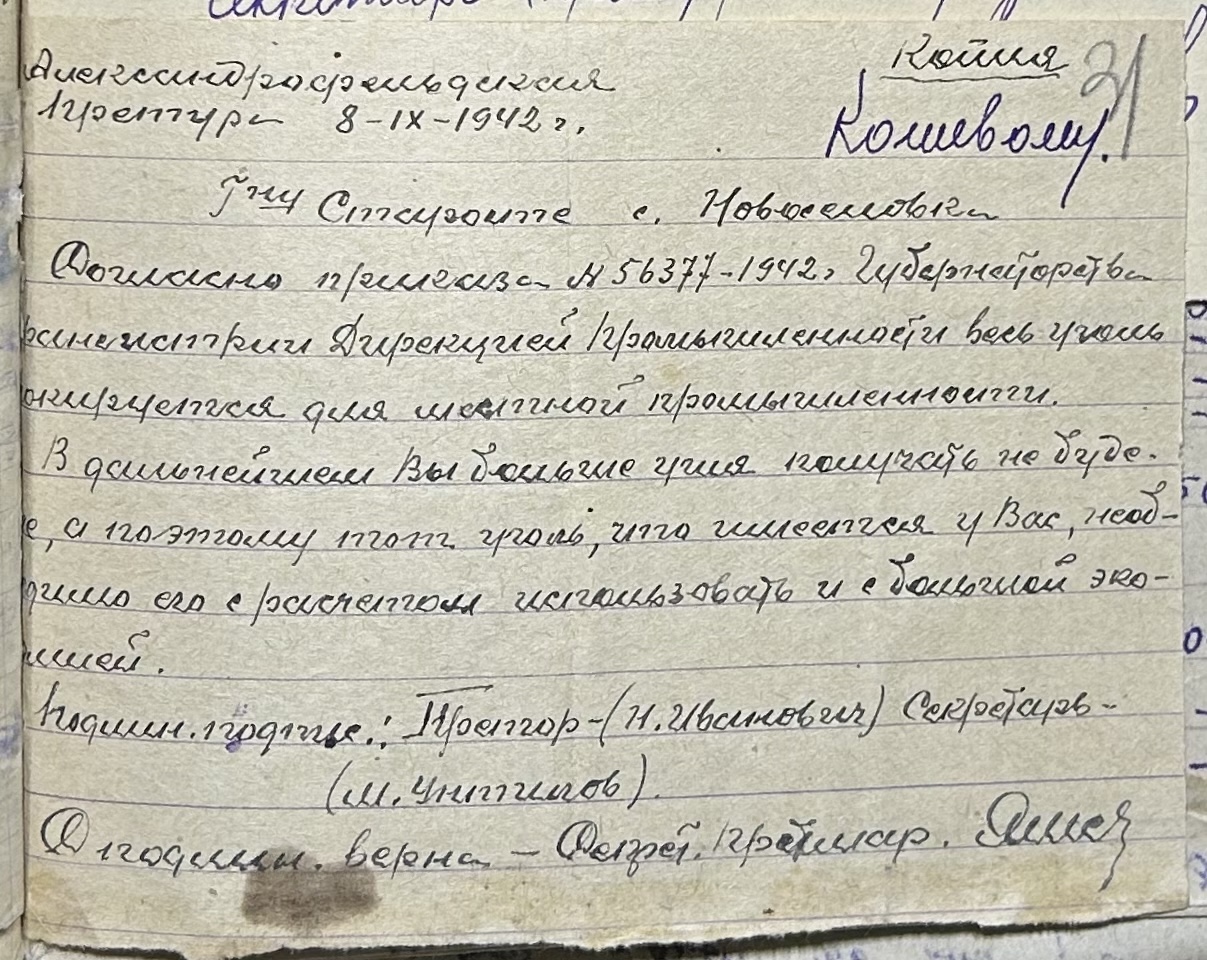 Александрофельдская
Претура 8-IX-1942 г.
Копия
31
Кошевому.
Г-ну Старосте с. Новоселовка
Согласно приказа N 56377-1942г Губернаторства
Транснистрии Дирекцией Промышленности весь уголь
для местной промышленности.
В дальнейшем Вы больше угля получать не буде-
е, а поэтому тот уголь, что имеется у Вас, необ-
димо его с расчетом использовать и с большой эко-
мией.
Подлин. подпис.: Претор-(Н. Иванович) Секретарь-
(М. )
С подлин. верна - Секрет.